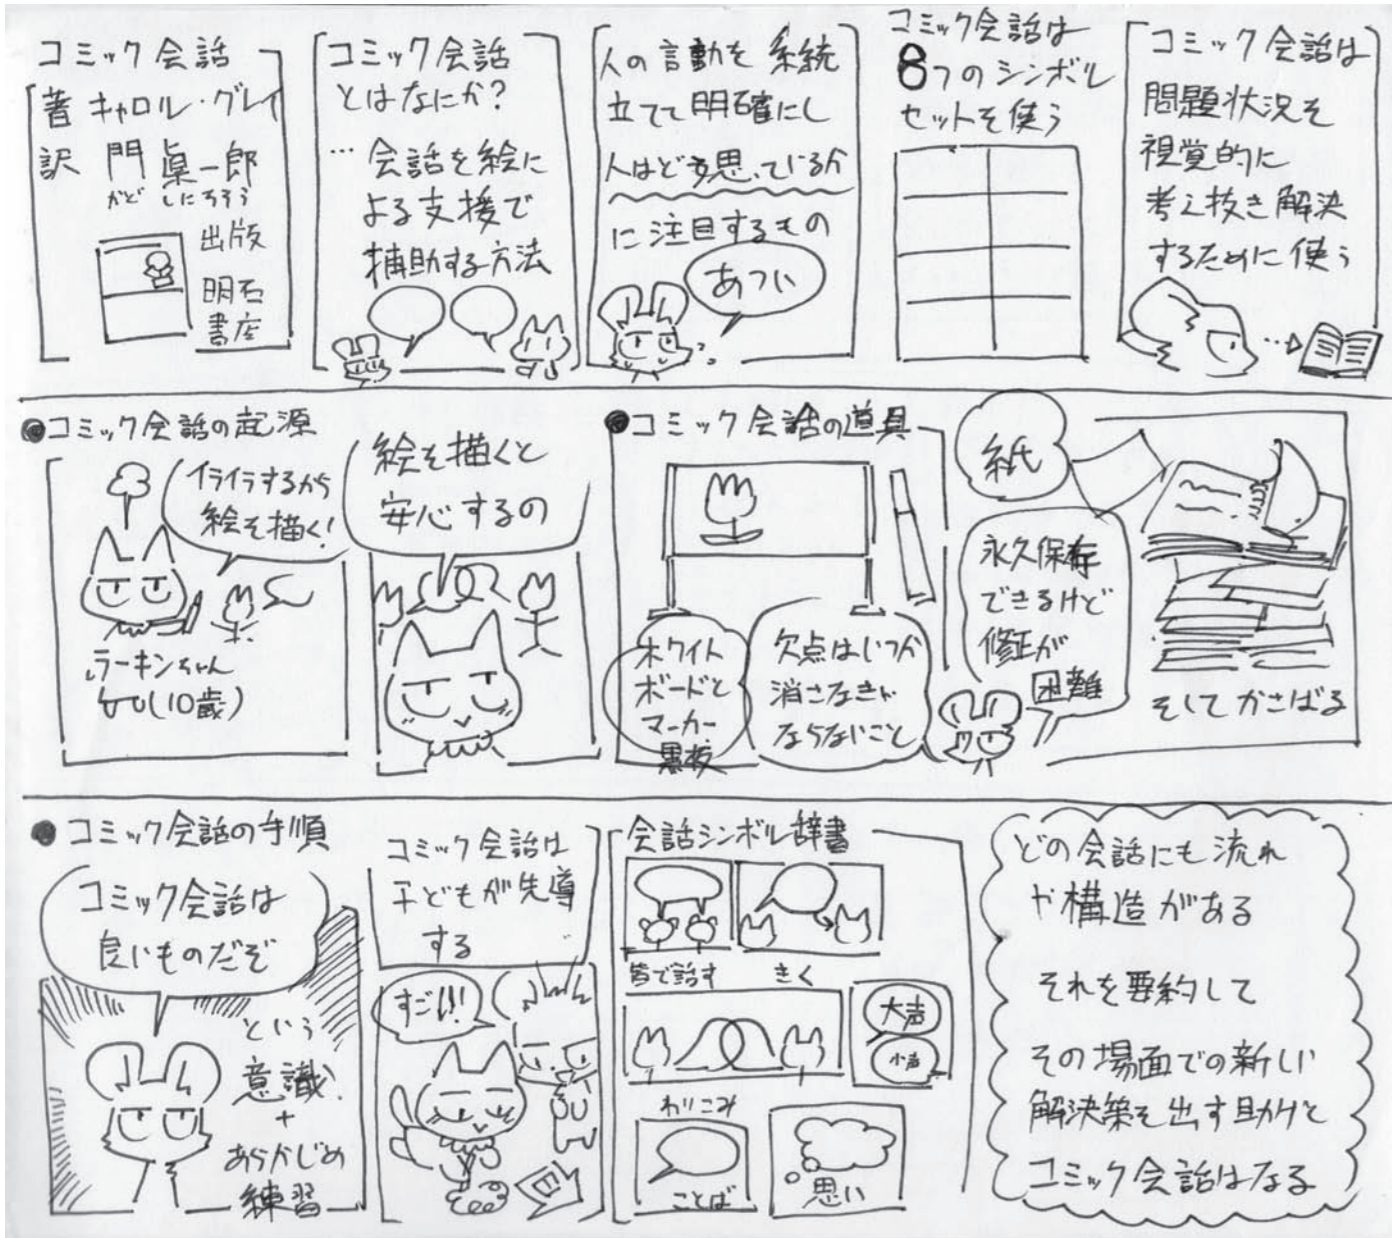 コミック会話
著 キャロル・グレイ
訳 門 眞一郎
かど しんいちろう
出版
明石
書店
コミック会話
とはなにか?
… 会話を絵に
よる支援で
補助する方法
人の言動を系統
立てて明確にし
人はどう思っているか
に注目するもの
あつい
コミック会話は
8つのシンボル
セットを使う
コミック会話は
問題状況を
視覚的に
考え抜き解決
するために使う
●コミック会話の起源
イライラするから
絵を描く!
ラーキンちゃん
(10歳)
絵を描くと
安心するの
●コミック会話の道具
ホワイト
ボードと
マーカー
黒板
欠点はいつか
消さなきゃ
ならないこと
紙
永久保存
できるけど
修正が
困難
そしてかさばる
●コミック会話の手順
コミック会話は
良いものだぞ
という
意識
+
あらかじめ
練習
コミック会話は
子どもが先導
する
すごい!!
会話シンボル辞書
皆で話す
きく
わりこみ
大声
小声
ことば
思い
どの会話にも流れ
や構造がある
それを要約して
その場面での新しい
解決策を出す助けと
コミック会話はなる